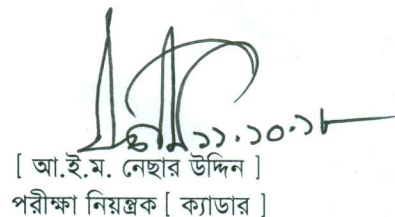 ১১.১০.১৮
[ আ.ই.ম. নেছার উদ্দিন ]
পরীক্ষা নিয়ন্ত্রক [ ক্যাডার ]